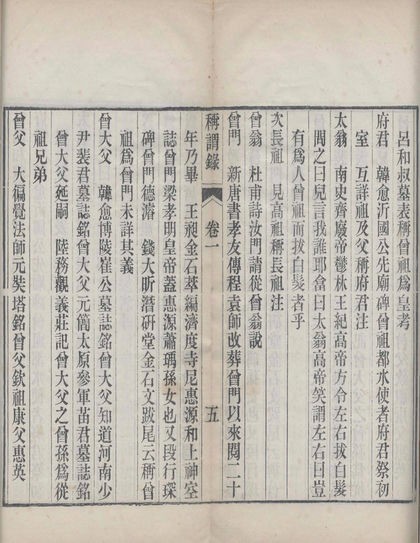 呂和叔墓表稱曾祖爲皇考
府君 韓愈沂國公先廟碑曾祖都水使者府君祭初
室 互詳祖及父稱府君注
太翁 南史齊廢帝鬱林王紀高帝方令左右拔白髮
問之曰兒言我誰耶答曰太翁高帝笑謂左右曰豈
有爲人曾祖而拔白髮者乎
次長祖 見高祖稱長祖注
曾翁 杜甫詩汝門請從曾翁說
曾門 新唐書孝友傳程袁師改葬曾門以來閱二十
稱謂錄 卷一 五
年乃畢 王昶金石萃編濟度寺尼惠源和上神空
誌曾門梁孝明皇帝蓋惠源蕭瑀孫女也又段行琛
碑曾門德濬 錢大昕潛研堂金石文跋尾云稱曾
祖爲曾門未詳其義
曾大父 韓愈博陵崔公墓誌銘曾大父知道河南少
尹裴君墓誌銘曾大父元簡太原參軍苗君墓誌銘
曾大父延嗣 陸務觀義莊記曾大父之曾孫爲從
祖兄弟
曾父 大徧覺法師元奘塔銘曾父欽祖康父惠英